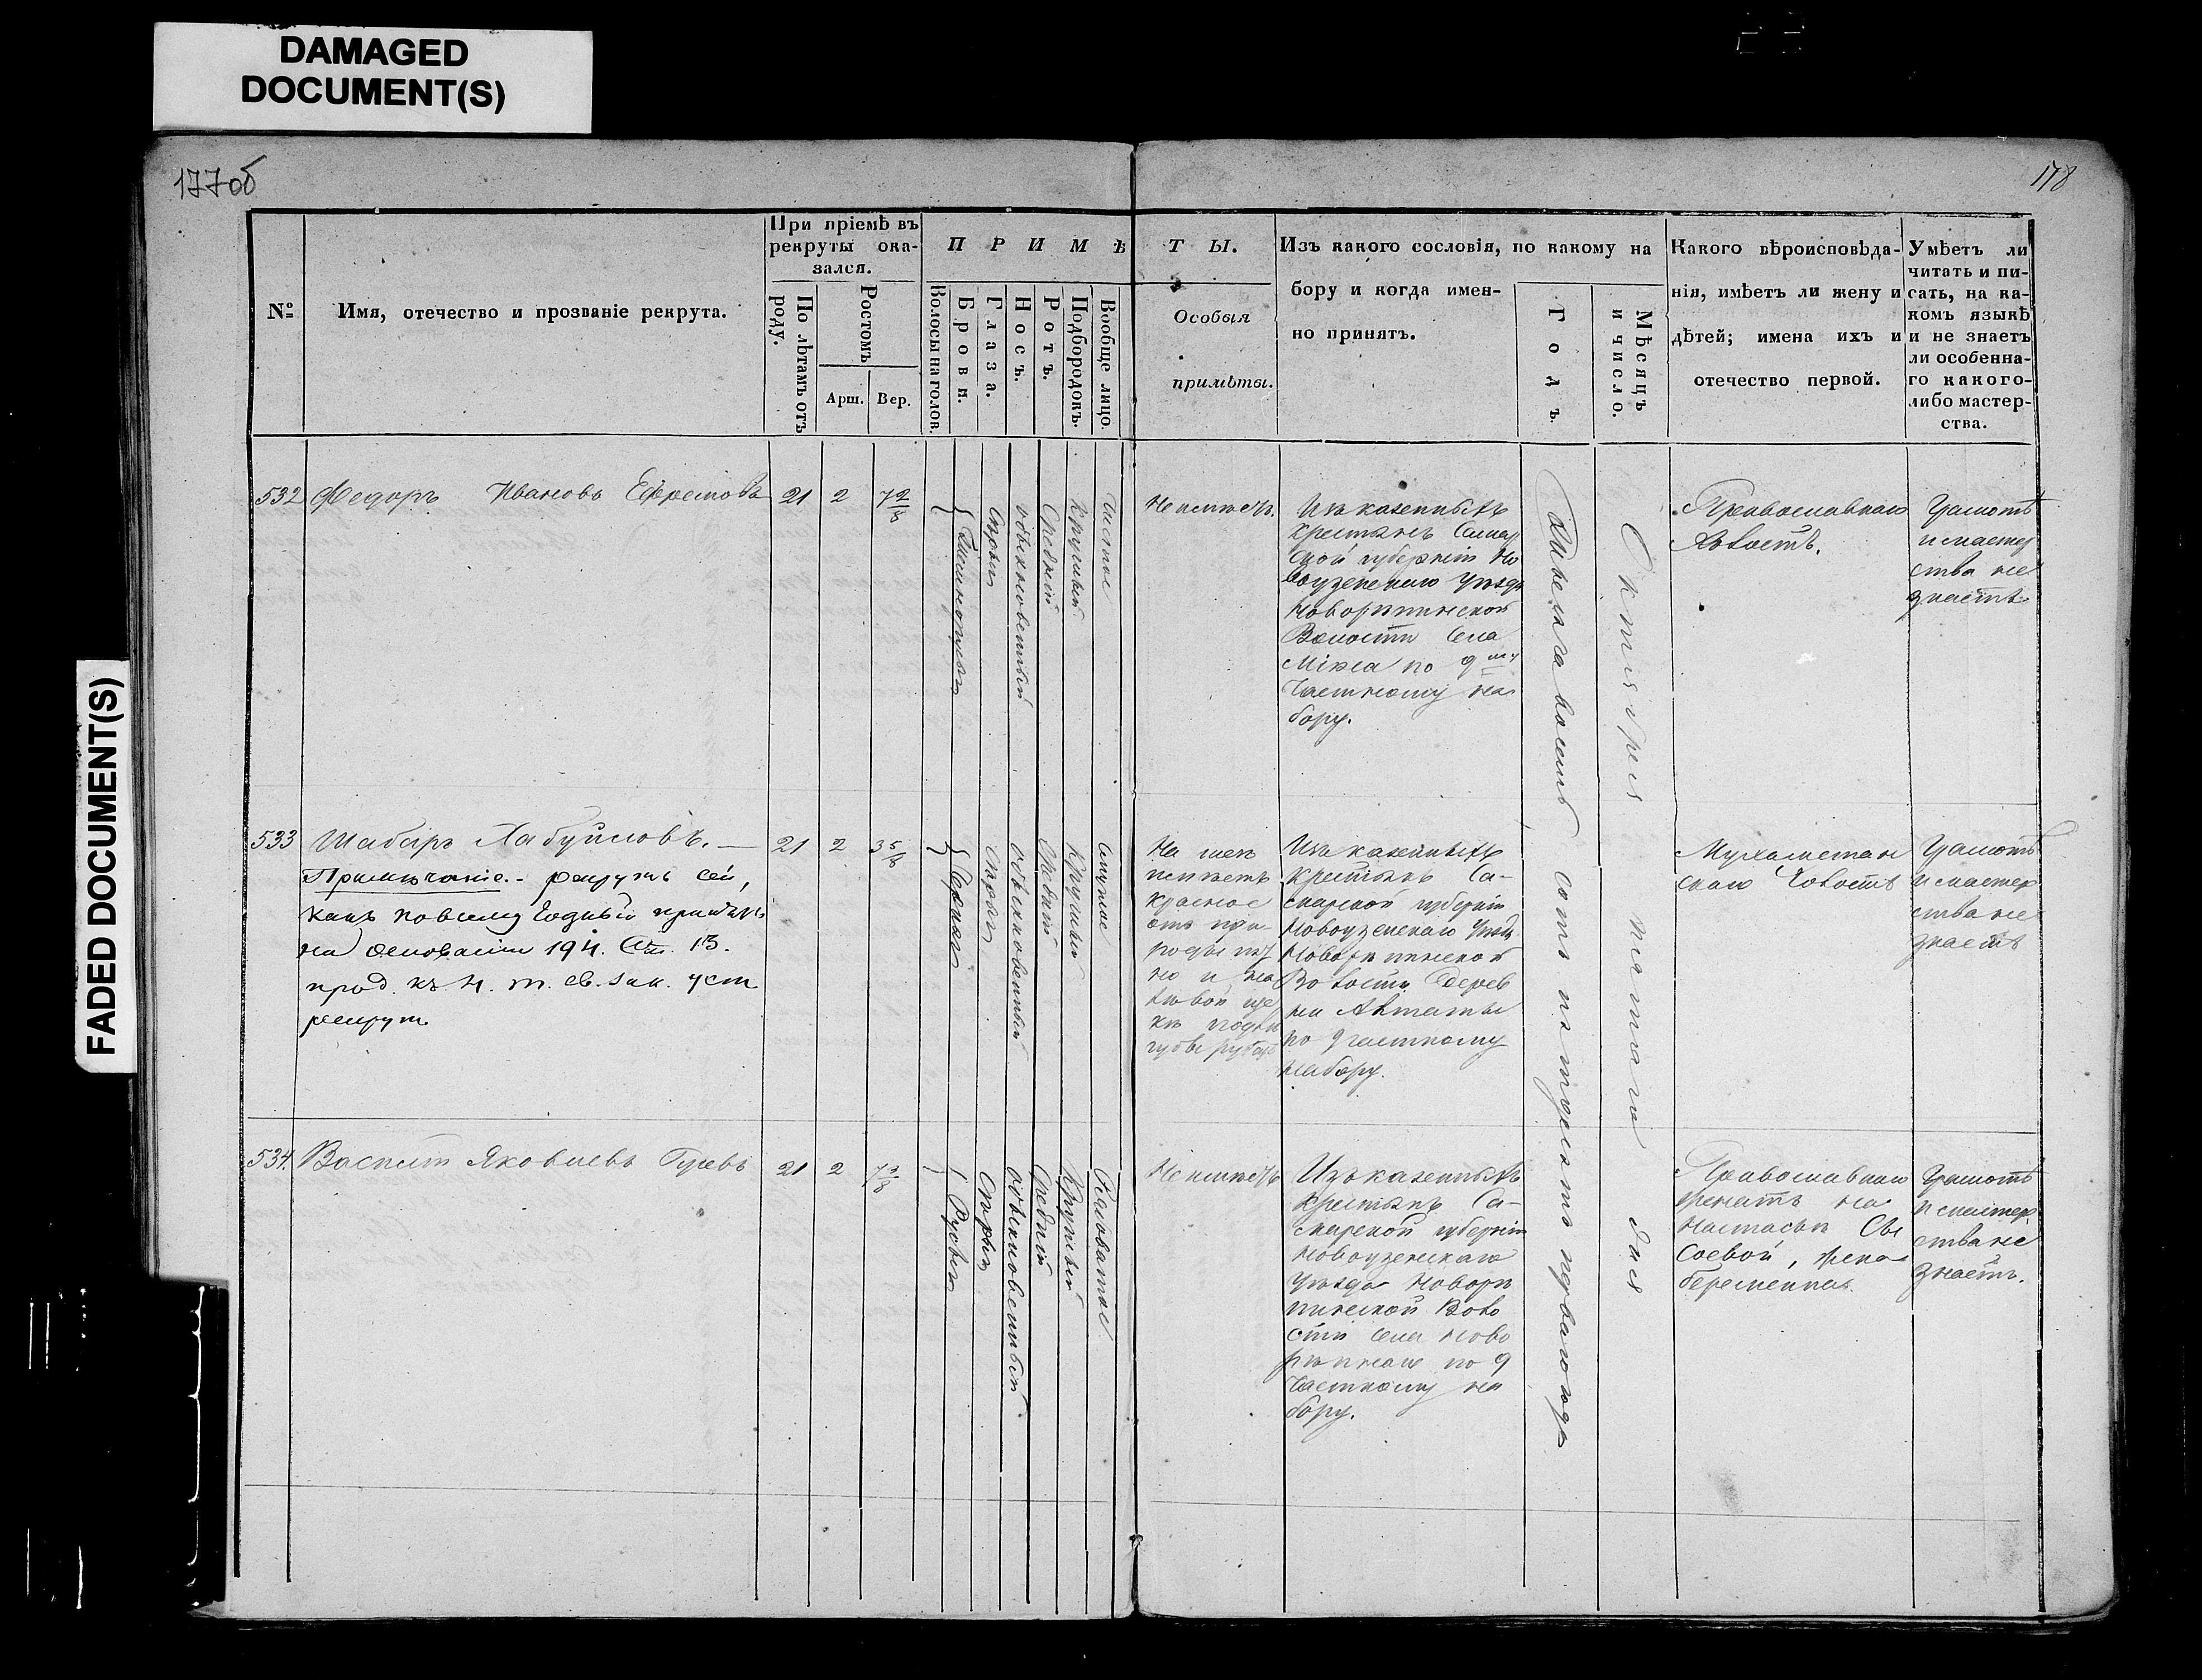 DAMAGED
DOCUMENT(S)
FADED DOCUMENT(S)
177об
178
№
Имя, отчество и прозваніе рекрута.
При пріемѣ въ
рекруты ока-
зался.
По лѣтамъ отъ
роду.
Ростомъ
Арш.
Вер.
ПРИМѢТЫ.
Волосы на голов.
Брови.
Глаза.
Носъ.
Ротъ.
Подбородокъ.
Вообще лицо.
Особыя
примѣты.
Изъ какого сословія, по какому на
бору и когда имен-
но принятъ.
Годъ.
Мѣсяцъ
и число.
Какого вѣроисповѣда-
нія, имѣетъ ли жену и
дѣтей; имена ихъ и
отечество первой.
Умѣетъ ли
читать и пи-
сать, на ка-
комъ языкѣ
и не знаетъ
ли особенна-
го какого-
либо мастер-
ства.
532
Федоръ Ивановъ Ефремовъ
21
2
7 2/8
Темнорусыя
Сѣрыя
обыкновенный
Средній
Круглый
Чистое
Не имѣетъ.
Изъ казенныхъ
крестьянъ Самар
ской губерніи Но
воузенскаго Уѣзда
Новорѣпинской
Волости Села
по 9му
Частному на
бору.
Тысяча восемь сотъ пятьдесятъ перваго года
Октября пятаго дня
Православнаго
Холостъ.
Грамотѣ
и мастер
ства не
знаетъ
533
Шабаръ Хабуйловъ.
Примѣчаніе. - рекрутъ сей,
какъ повсему Годный принятъ
на основаніи 194. Ст. 13.
прод. къ 4. т. св. зак. уст
рекрут.
21
2
3 5/8
Черныя
Карія
обыкновенный
Средній
Круглый
Смуглое
На шеѣ
имѣетъ
красное
отъ при-
роды пят
но и на
лѣвой ще
кѣ подлѣ
губы рубецъ
Изъ казенныхъ
крестьянъ Са-
марской губерніи
Новоузенскаго Уѣзд.
Новорѣпинской
Волости Дерев
ни Алтаты
по 9 частному
набору.
Мухаметан
скаго Холостъ
Грамотѣ
и мастер
ства не
знаетъ
534.
Василій Яковлевъ Гуревъ
21
2
Русыя
Сѣрыя
обыкновенный
Средній
Круглый
Рябоватое
Не имѣетъ
Изъ казенныхъ
крестьянъ Са-
марской губерніи
Новоузенскаго
Уѣзда Новорѣ
пинской Воло
сти Села Ново
рѣпнаго по 9
Частному на
бору.
Православнаго
женатъ на
Настасьѣ Сы
соевой, жена
беременна.
Грамотѣ
и мастер
ства не
знаетъ.